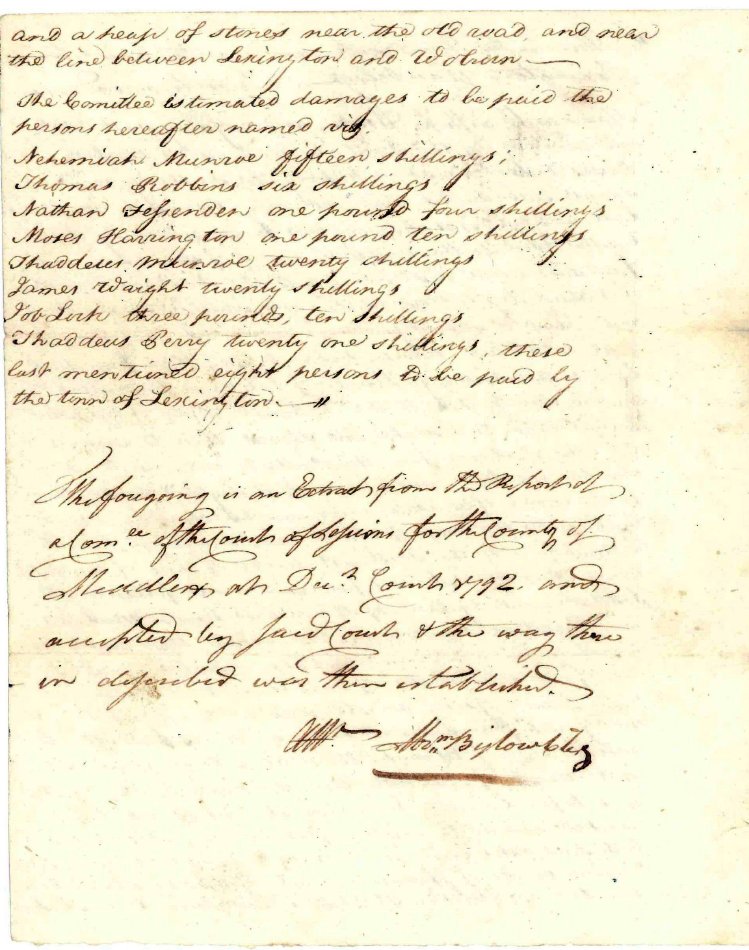 and a heap of stones near the old road, and near
the line between Lexington and Woburn —
The Comittee estimated damages to be paid the
persons hereafter named viz.
Nehemiah Munroe fifteen shillings,
Thomas Robbins six shillings
Nathan Fessenden one pound four shillings
Moses Harrington one pound ten shillings
Thaddeus Munroe twenty shillings
James Wright twenty shillings
Job Lock three pounds, ten shillings
Thaddeus Perry twenty one shillings, these
last mentioned eight persons to be paid by
the town of Lexington. —
The foregoing is an Extract from the Report of
a Com.ee of the Court of Sessions for the County of
Middlesex at Dec.r Court 1792 and
accepted by said Court & the way there
in described was then established.
Att.r Abr.m Biglow Cler